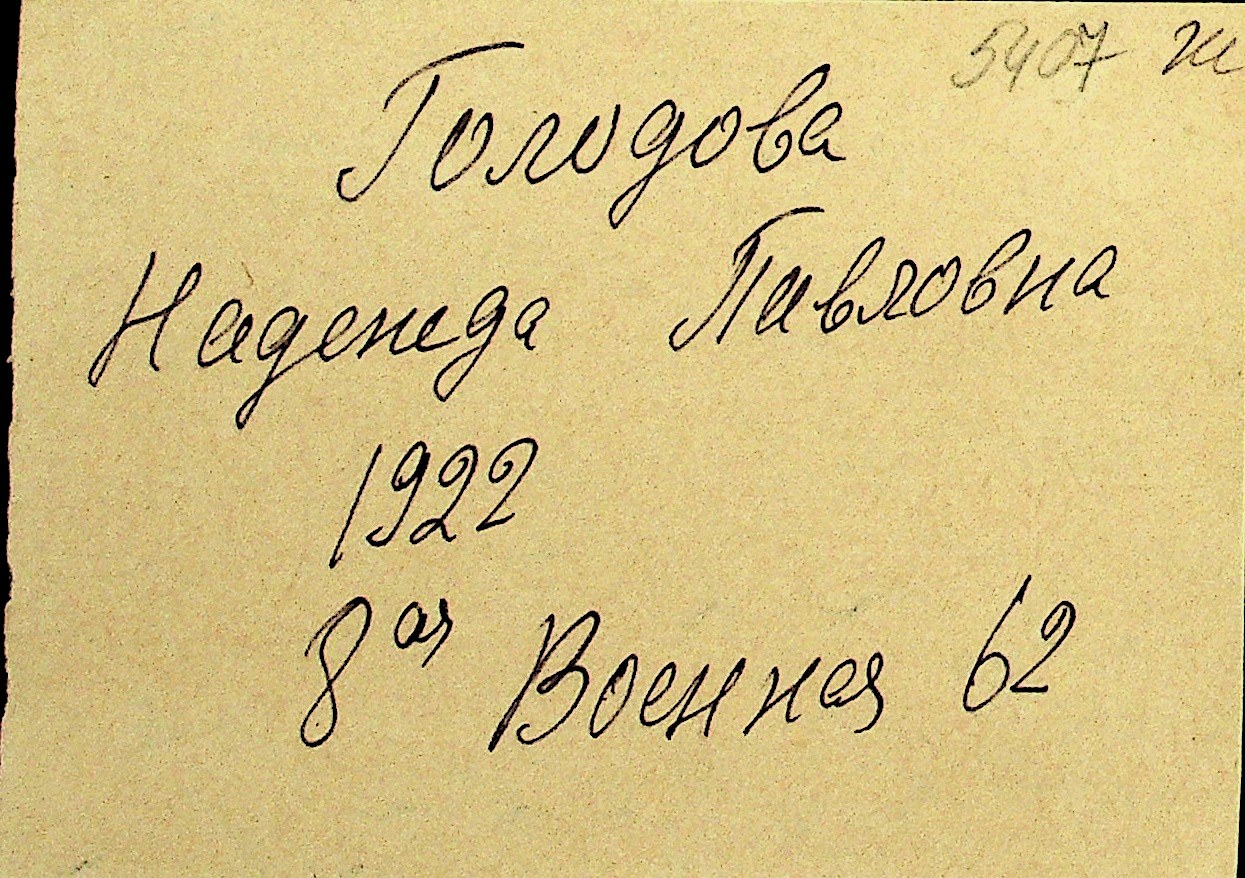 5407 ж
Голодова
Надежда Павловна
1922
8ая Военная 62